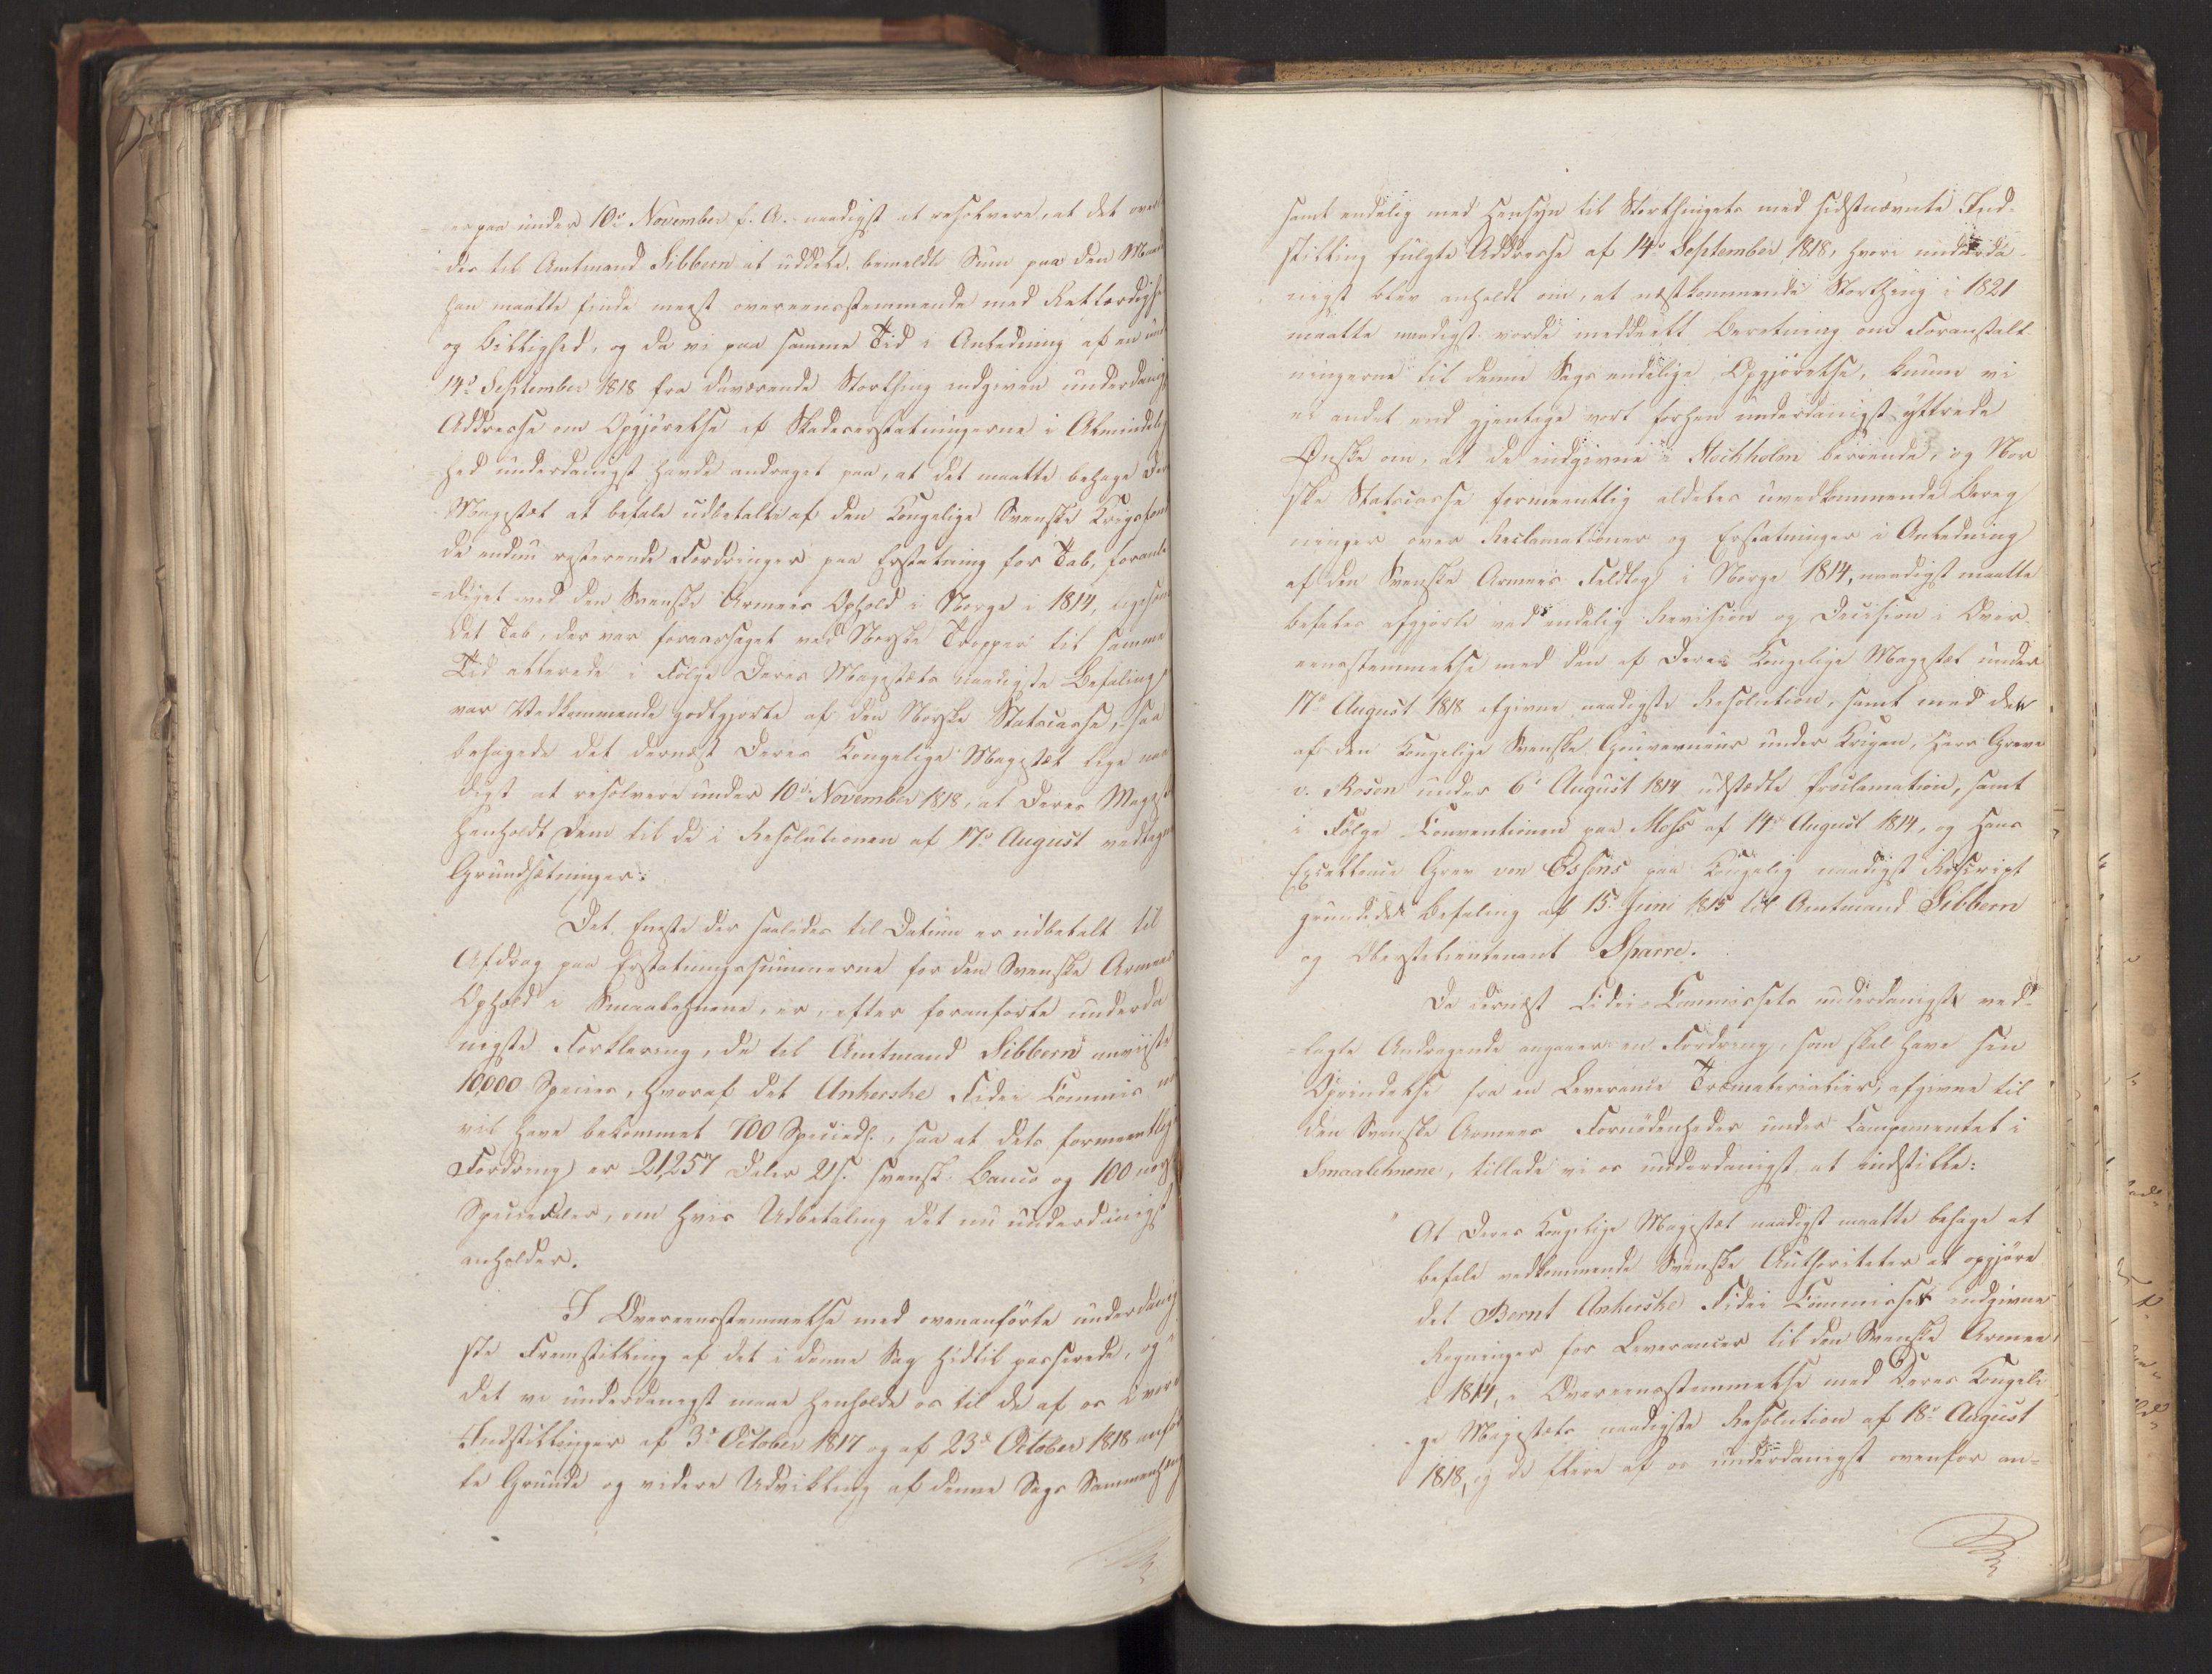 =erpaa under 10de November s. A. naadigst at resolvere, at det over
des til Amtmand Sibbern at uddele bemeldte Sum paa den Maade
han maatte finde meest overeensstemmende med Retfærdighed
og Billighed, og da vi paa samme Tid i Anledning af en under
14de September 1818 fra daværende Storthing indgiven underdanigst
Addresse om Opgjørelse af Skadeserstatningerne i Almindelig
=hed underdanigst havde andraget paa, at det maatte behage Deres
Majestæt at befale udbetalte af den Kongelige Svenske Krigsfond
de endnu resterende Fordringer paa Erstatning for Tab, foranle
=diget ved den Svenske Armees Ophold i Norge i 1814, ligesom
det Tab, der var foraarsaget ved Norske Tropper til samme
Tid allerede i Følge Deres Majestæts naadigste Befaling
var Vedkommende godtgjorte af den Norske Statscasse, saa
behagede det dernæst Deres Kongelige Majestæt lige naa
digst at resolvere under 10de November 1818, at Deres Majestæt
henholdt Dem til de i Resolutionen af 17de August vedtagne
Grundsætninger.
Det Eneste der saaledes til Datum er udbetalt til
Afdrag paa Erstatningssummerne for den Svenske Armees
Ophold i Smaalehnene, er, efter foranførte underda
nigste Forklaring, de til Amtmand Sibbern anviiste
10,000 Species, hvoraf det Ankerske Fidei Commis nu
vil have bekommet 700 Speciedlr, saa at dets formeentlige
Fordring er 21,257 Daler 21 s. svensk Banco og 100 norske
Speciedaler, om hvis Udbetaling det nu underdanigst
anholder.
I Overeensstemmelse med ovenanførte underdanig
ste Fremstilling af det i denne Sag hidtil passerede, og
det vi underdanigst maae henholde os til de af os i vore
Indstillinger af 3de October 1817 og af 23de October 1818 anfør
te Grunde og videre Udvikling af denne Sags Sammenhæng
samt endelig med Hensyn til Storthingets med sidstnævnte Ind-
stilling fulgte Addresse af 14de September 1818, hvori underda-
nigst blev anholdt om, at næstkommende Storthing i 1821
maatte naadigst vorde meddeelt Beretning om Foranstalt
ningerne til denne Sags endelige Opgjørelse, kunne vi
ei andet end gjentage vort forhen underdanigst yttrede
Ønske om, at de indgivne i Stockholm beroende, og Nor
ske Statscasse formeentlig aldeles uvedkommende Bereg
ninger over Reclamationer og Erstatninger i Anledning
af den Svenske Armees Feldtog i Norge 1814, naadigst maatte
befales afgjorte ved endelig Revision og Decision i Over-
eensstemmelse med den af Deres Kongelige Majestæt under
17de August 1818 afgivne naadigste Resolution, samt med den
af den Kongelige Svenske Gouverneur under Krigen, Herr Greve
v. Rosen under 6te August 1814 udstædte Proclamation, samt
i Følge Conventionen paa Moss af 14de August 1814, og Hans
Excellence Grev von Essens paa Kongelig naadigst Rescript
grundede Befaling af 15de Juni 1815 til Amtmand Sibbern
og Oberstelieutenant Sparre.
Da dernæst Fidei-Commissets underdanigst ved-
=lagte Andragende angaaer en Fordring, som skal have sin
Oprindelse fra en Leverance Træmaterialier, afgivne til
den Svenske Armees Fornødenheder under Campementet i
Smaalehnene, tillade vi os underdanigst at indstille:
" At Deres Kongelige Majestæt naadigst maatte behage at
befale vedkommende Svenske Authoriteter at opgjøre
det Bernt Ankerske Fidei Commisses indgivne
Regninger for Leverancer til den Svenske Armee
i 1814, i Overeensstemmelse med Deres Kongeli
ge Majestæts naadigste Resolution af 18de August
1818, og de flere af os underdanigst ovenfor an=